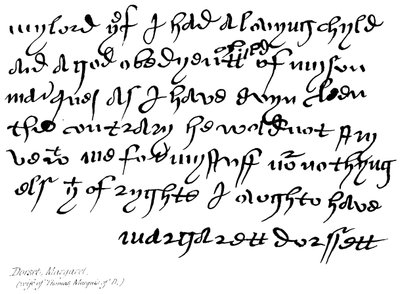 mylord yf I had a lovyng chyld
and a god obedyentt child of my son
marques as I have evyn cleen
the contrary he wold not stry
ve wt me for my stuff nor nothyng
els yt of ryghte I oughte to have
margarett dorssett
Dorset, Margaret.
(wife of Thomas Marquis of D.)